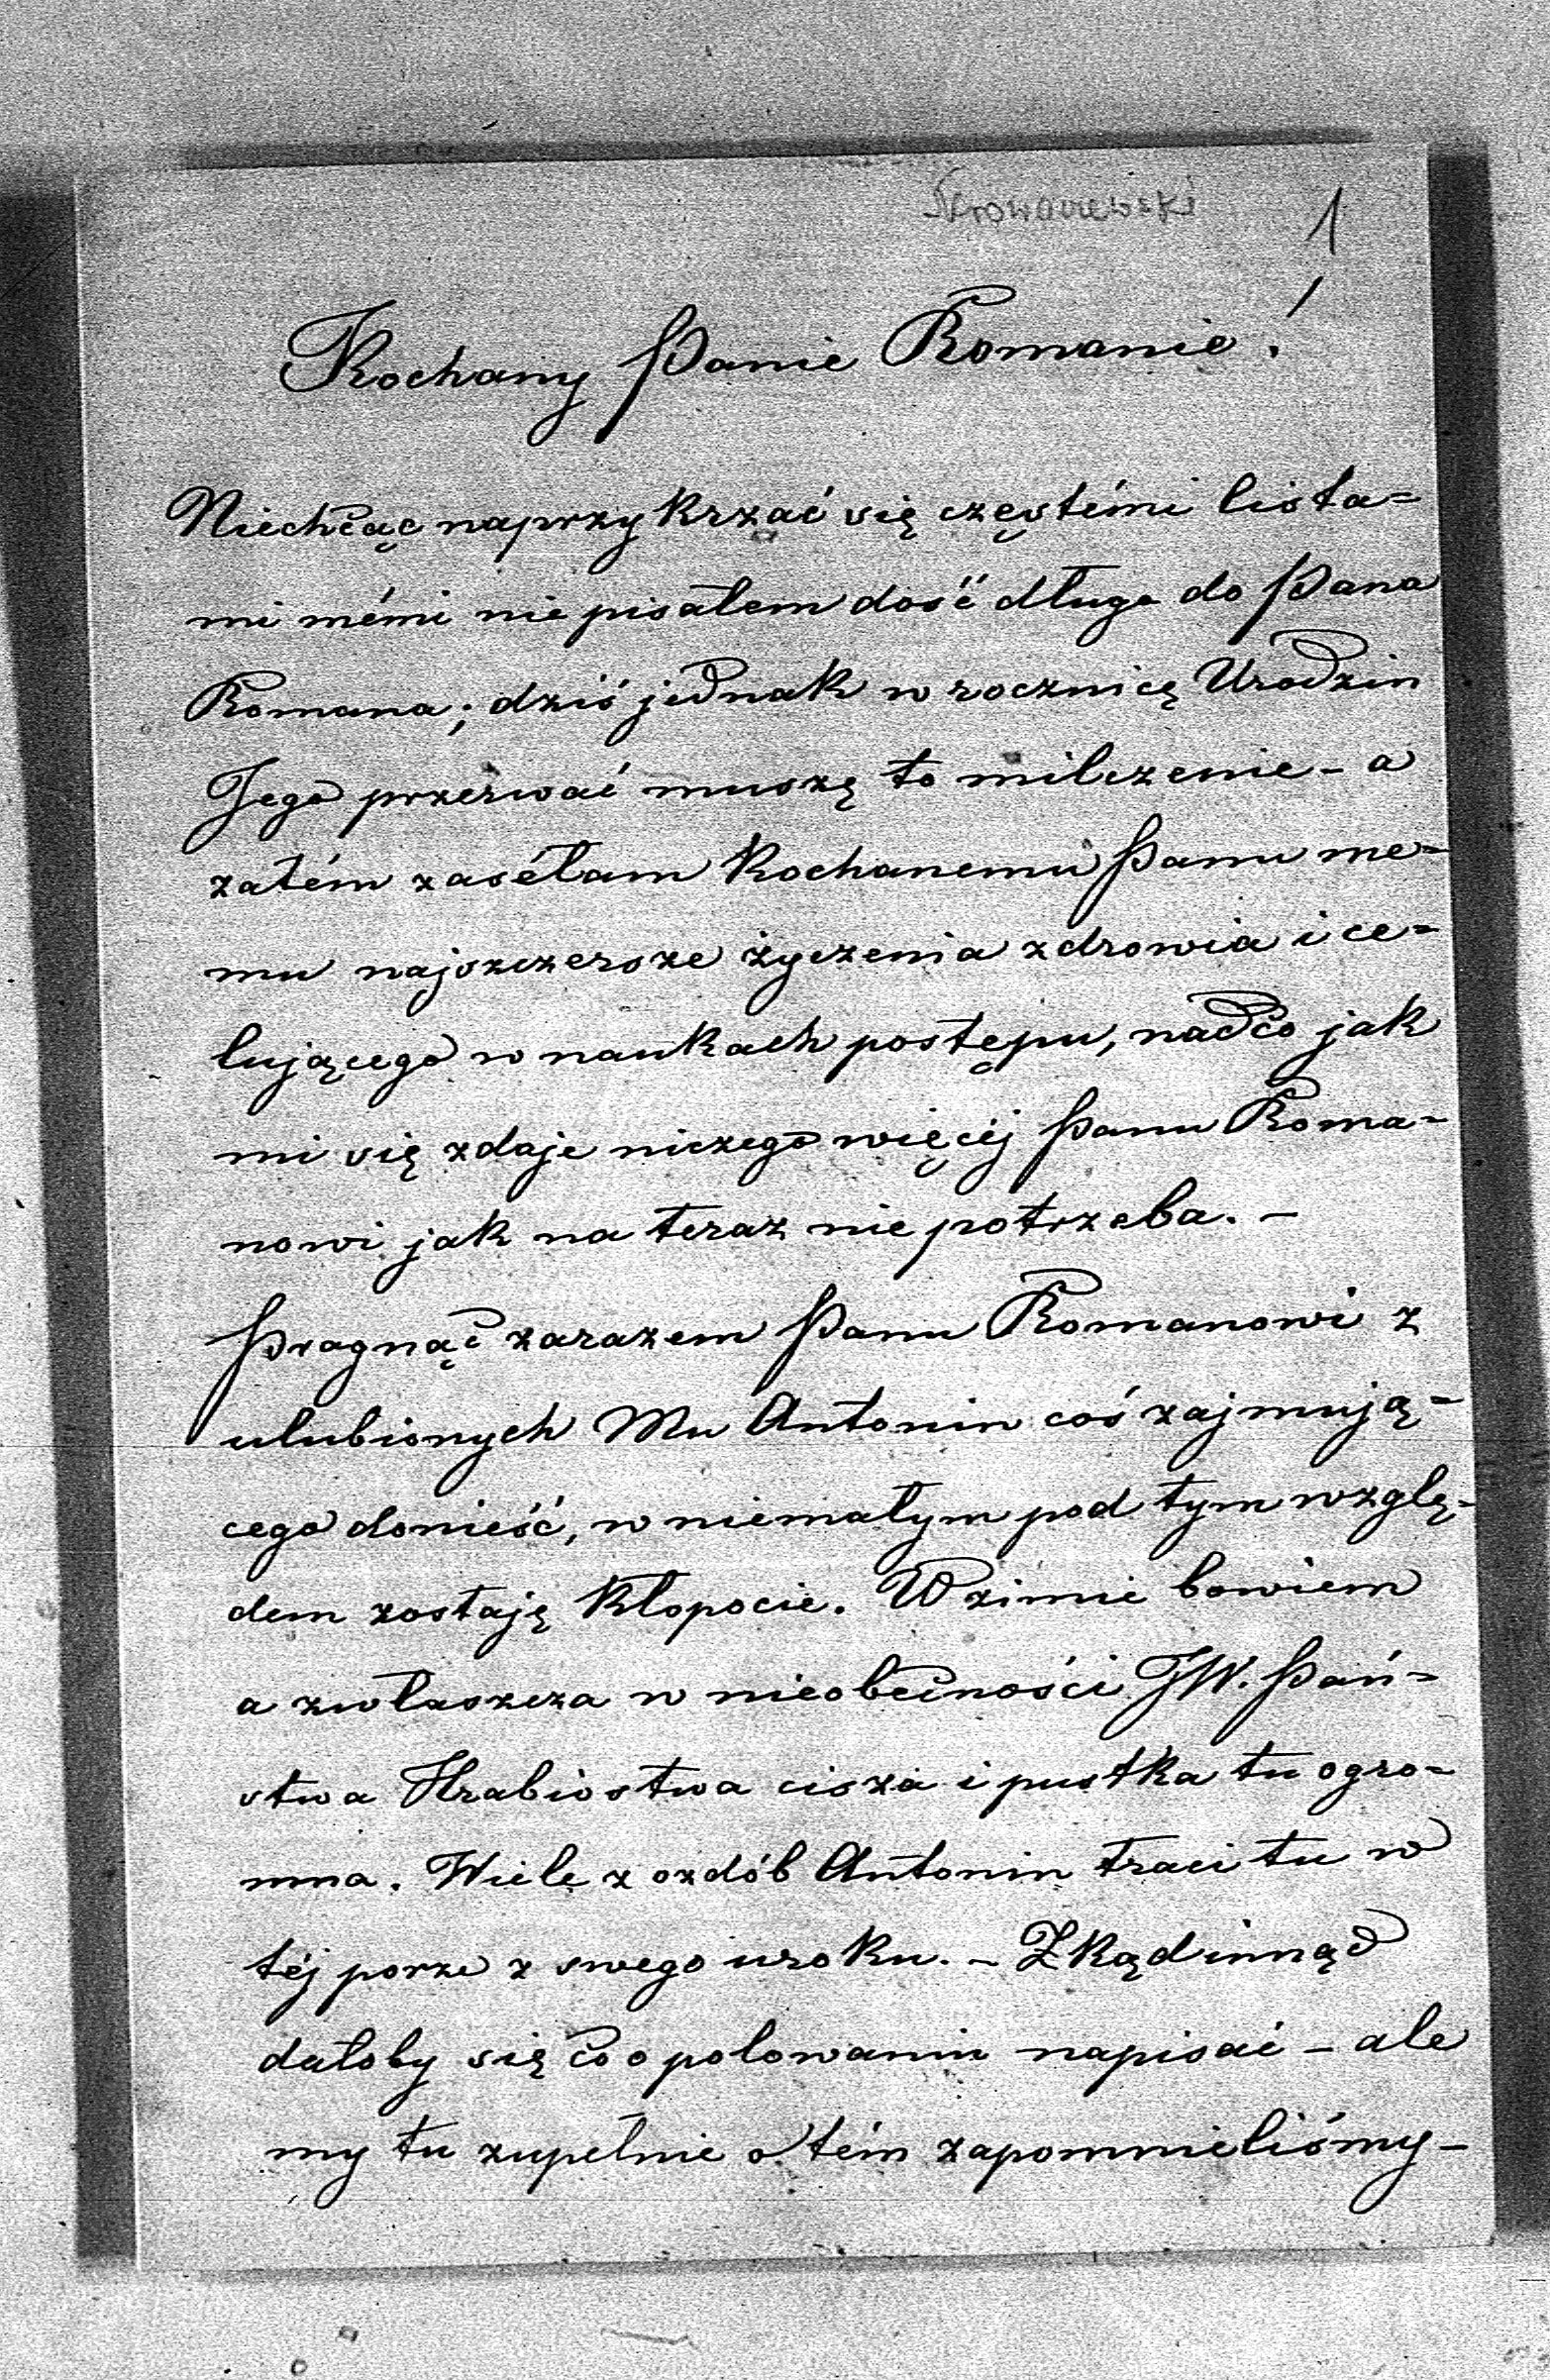 1
Kochany Panie Romanie!
Niechcąc naprzykrzać się częstémi lista=
mi mémi nie pisałem dość długo do Pana
Romana; dziś jednak w rocznicę Urodzin
Jego przerwać muszę to milczenie – a
zatém zasełam Kochanemu Panu me=
mu najszczersze życzenia zdrowia i ce=
lującego w naukach postępu, nad co jak
mi się zdaje niczego więcéj Panu Roma=
nowi jak na teraz nie potrzeba. –
Pragnąc zarazem Panu Romanowi z
ulubionych Mu Antonin coś zajmują=
cego donieść, w niemałym pod tym wzglę=
dem zostaję kłopocie. W zimie bowiem
a zwłaszcza w nieobecności JW. Pań=
stwa Hrabiostwa cisza i pustka tu ogro=
mna. Wiele z ozdób Antonin traci tu w
téj porze z swego uroku. – Zkądinnąd
dałoby się co o polowaniu napisać – ale
my tu zupełnie o tém zapomnieliśmy –